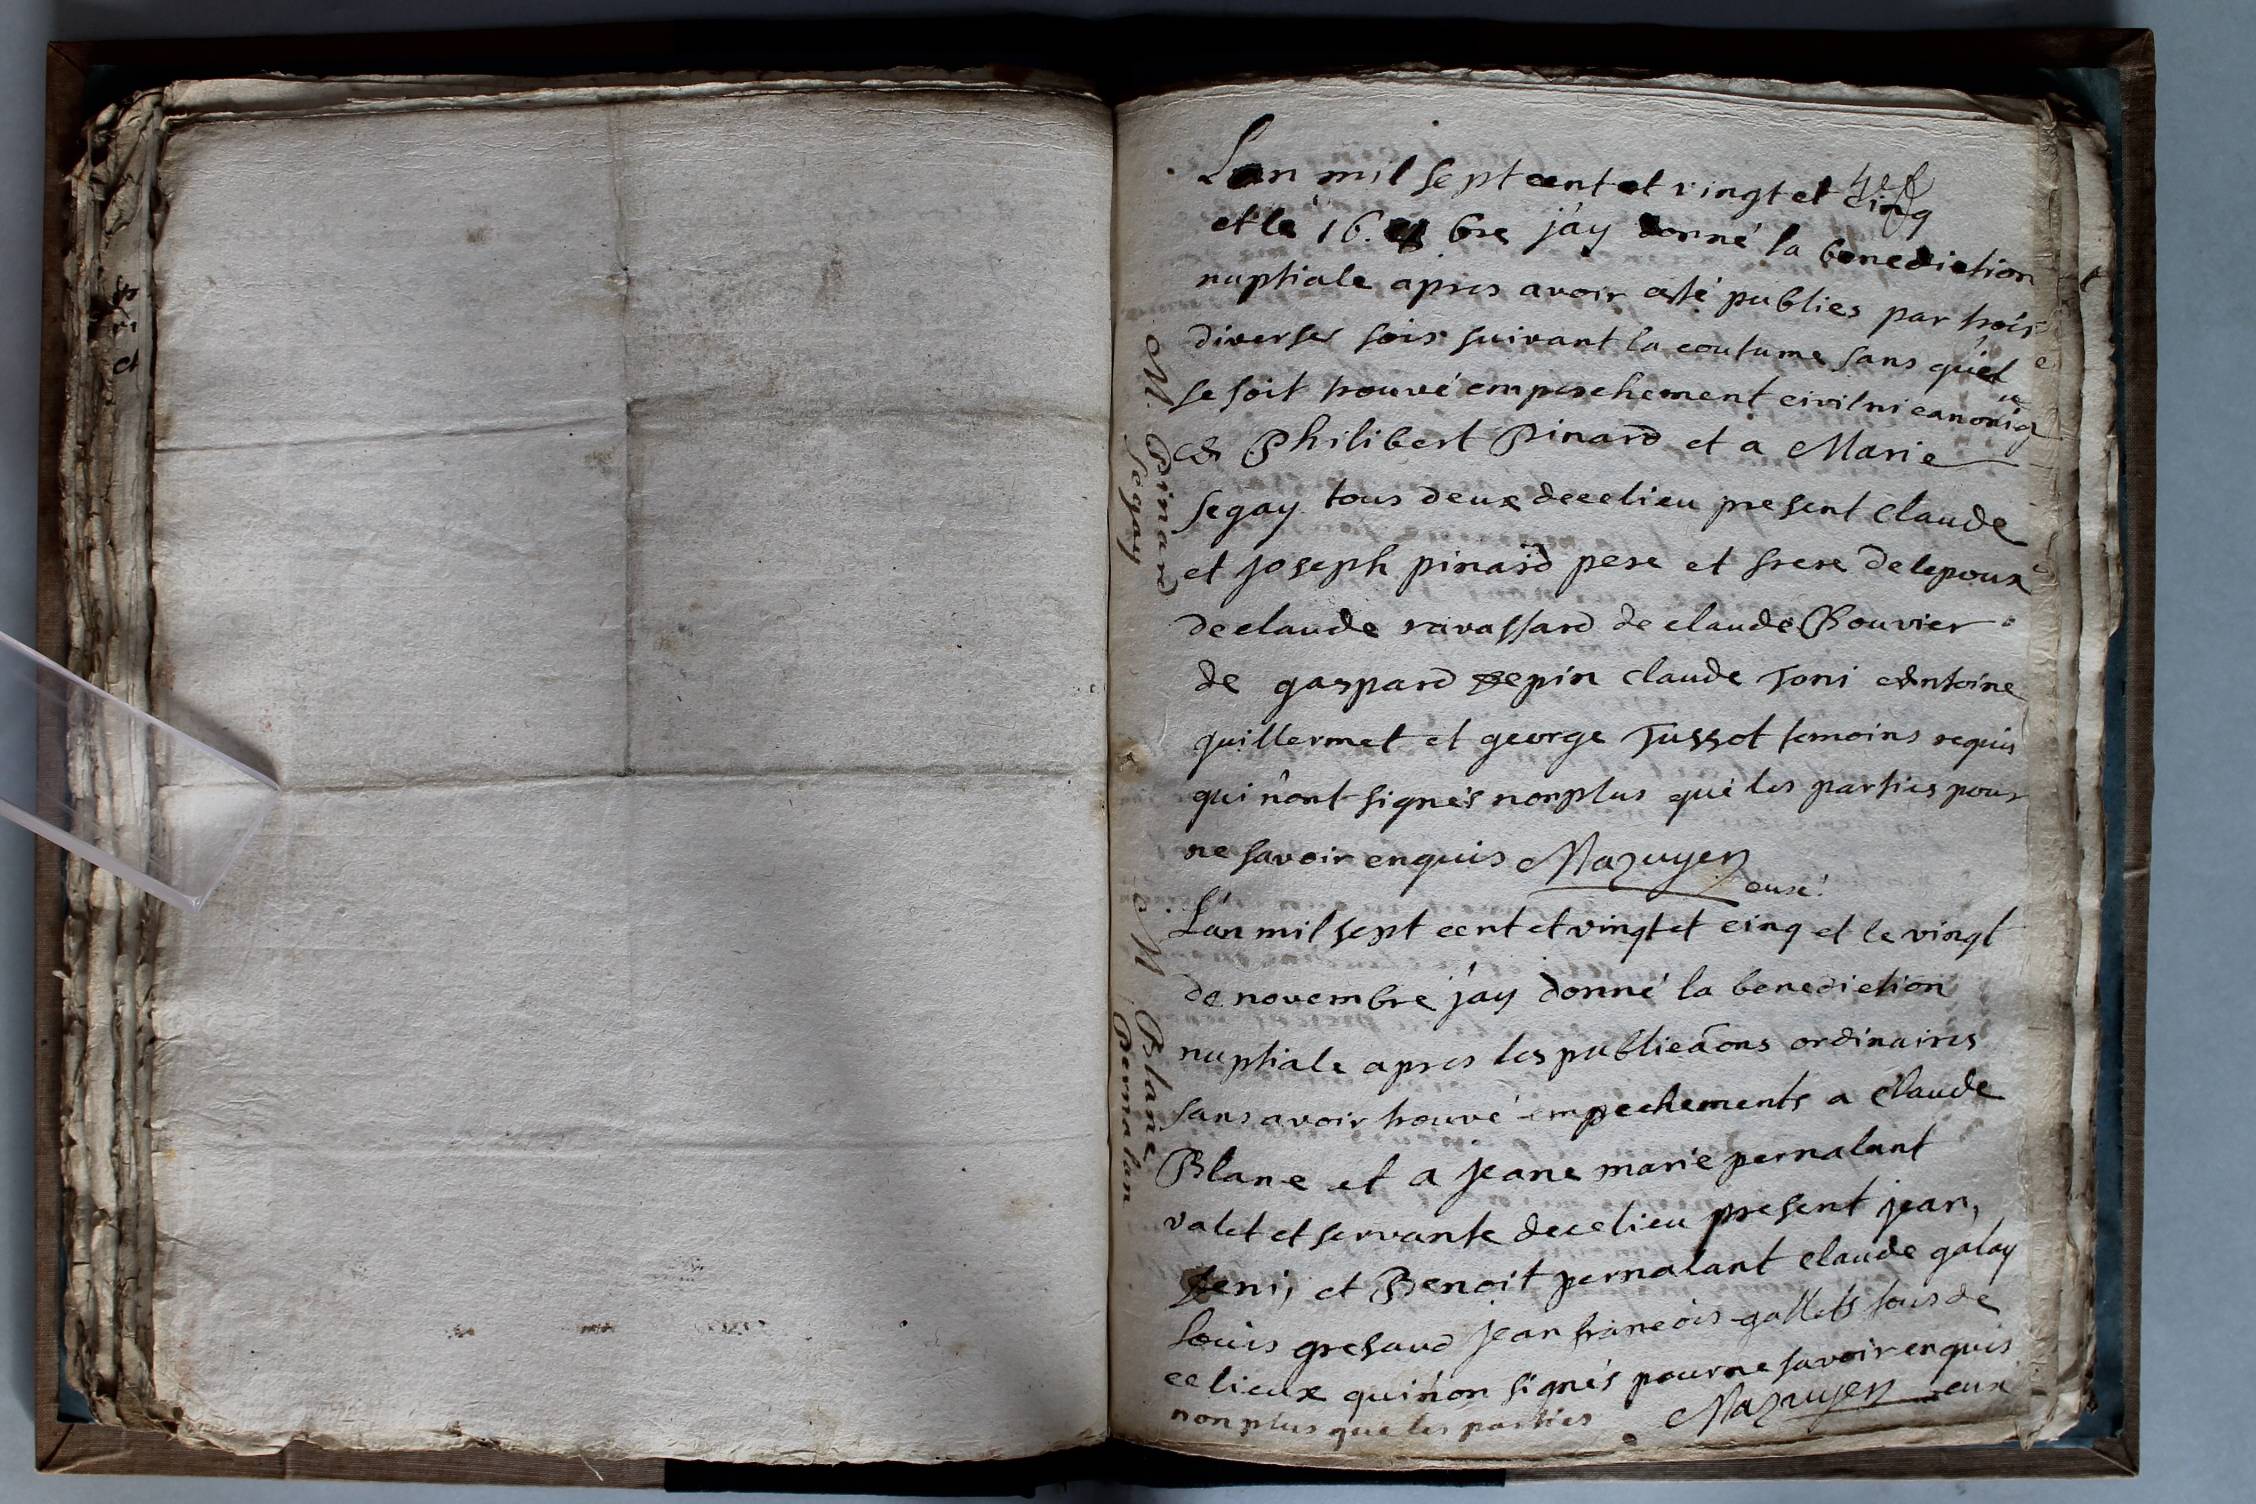 L'an mil sept cent et vingt et cinq
et le 16. bre j'ay donné la benediction
nuptiale apres avoir esté publies par trois
diverses fois suivant la coutume sans qu'il
se soit trouvé empeschement civil ni canoniq
a Philibert Pinard et a Marie
segay tous deux dece lieu present Claude
et joseph pinard pere et frere de lepoux
de claude ravassard de claude Bouvier
de gaspard pepin claude Toni Antoine
guillermet et george Tussot temoins requis
qui n'ont signés nonplus que les parties pour
ne savoir enquis Mazuyer
curé.
L'an mil sept cent et vingt et cinq et le vingt
de novembre j'ay donné la benediction
nuptiale apres les publicãons ordinaires
sans avoir trouvé empechements a Claude
Blanc et a jeane marie pernalant
valet et servante dece lieu present jean,
et Benoit pernalant claude galay
Louis gresaud jean francois gallets tous de
ce lieux qui n'on signés pour ne savoir enquis
non plus que les parties Mazuyer curé
M. Pinard
segay
M Blanc
Pernalan